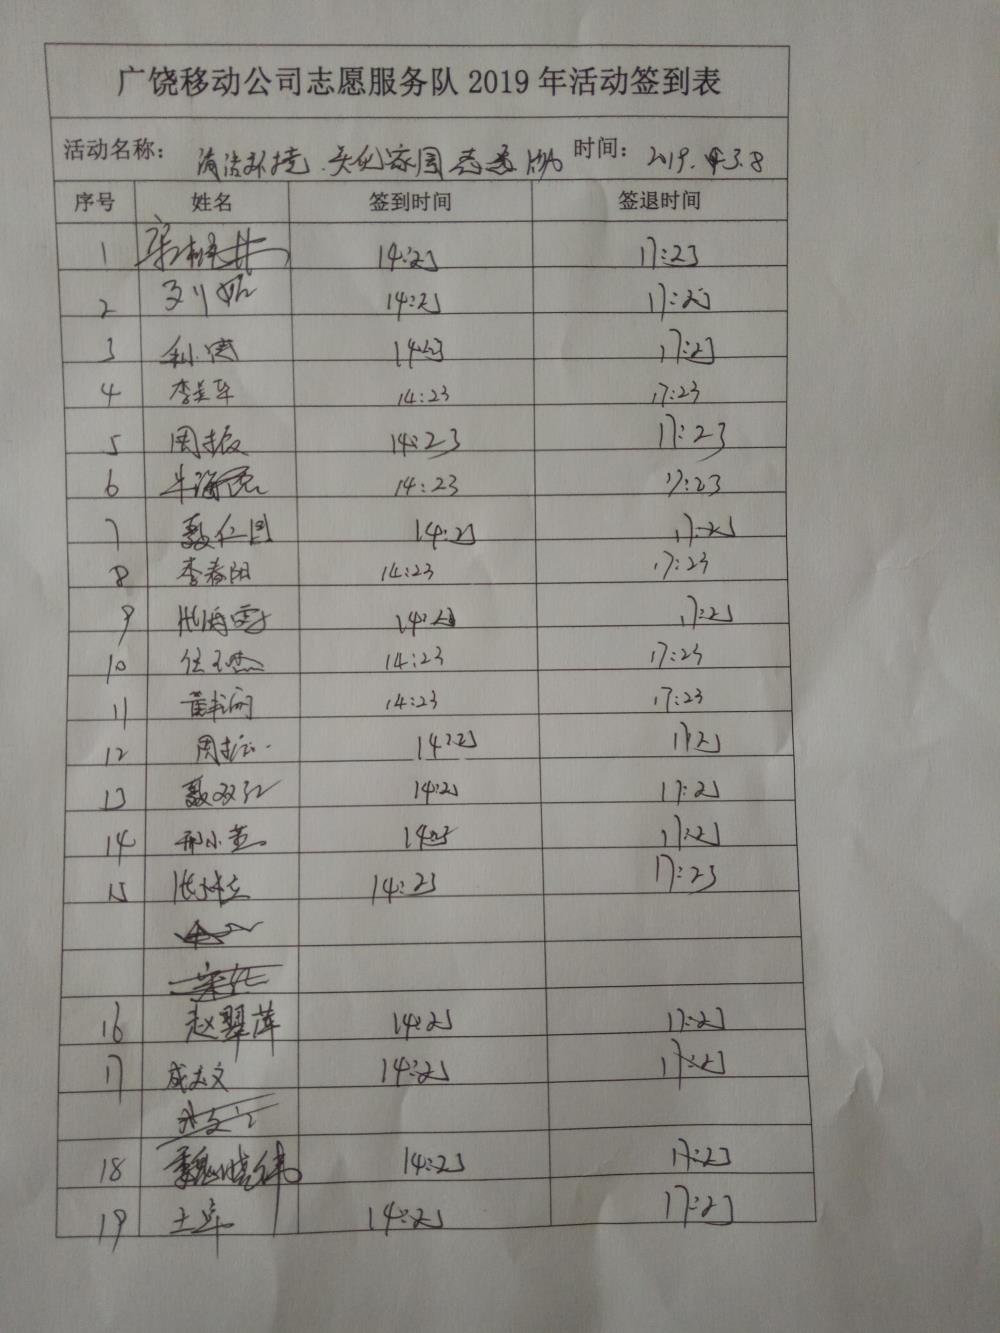 广饶移动公司志愿服务队 2019 年活动签到表
活动名称： 清洁环境 美化家园志愿服务 时间： 2019.3.8
序号 姓名 签到时间 签退时间
1 14:23 17:23
2 14:23 17:23
3 14:23 17:23
4 李美华 14:23 17:23
5 周振 14:23 17:23
6 牛海 14:23 17:23
7 聂仁国 14:23 17:23
8 李春阳 14:23 17:23
9 张海雪 14:23 17:23
10 任玉杰 14:23 17:23
11 14:23 17:23
12 周 14:23 17:23
13 聂双红 14:23 17:23
14 邢小 14:23 17:23
15 张 14:23 17:23
16 赵翠萍 14:23 17:23
17 成志文 14:23 17:23
18 魏晓伟 14:23 17:23
19 14:23 17:23